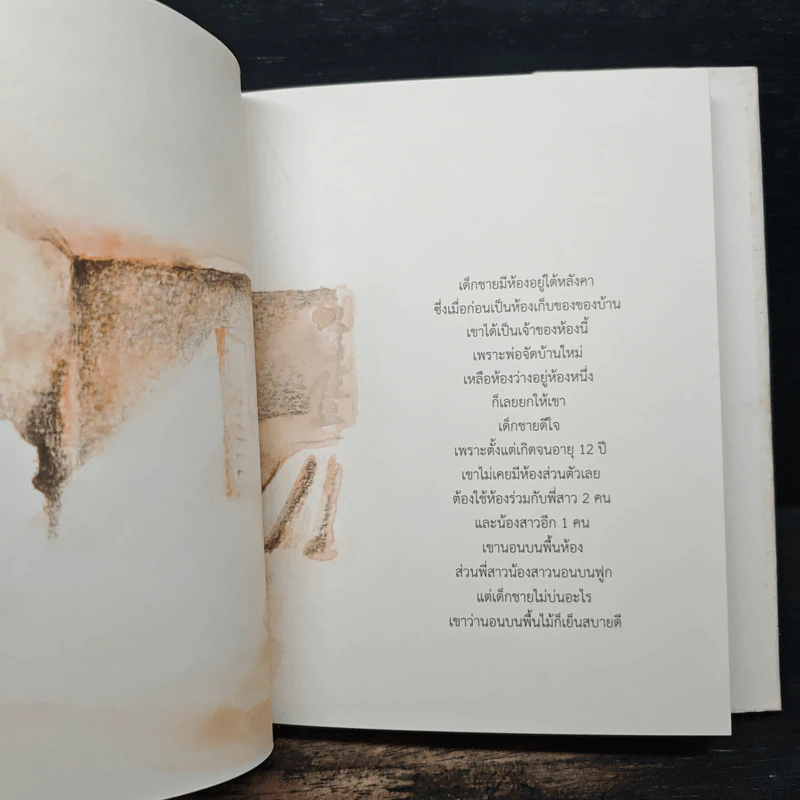 เด็กชายมีห้องอยู่ใต้หลังคา
ซึ่งเมื่อก่อนเป็นห้องเก็บของของบ้าน
เขาได้เป็นเจ้าของห้องนี้
เพราะพ่อจัดบ้านใหม่
เหลือห้องว่างอยู่ห้องหนึ่ง
ก็เลยยกให้เขา
เด็กชายดีใจ
เพราะตั้งแต่เกิดจนอายุ 12 ปี
เขาไม่เคยมีห้องส่วนตัวเลย
ต้องใช้ห้องร่วมกับพี่สาว 2 คน
และน้องสาวอีก 1 คน
เขานอนบนพื้นห้อง
ส่วนพี่สาวน้องสาวนอนบนฟูก
แต่เด็กชายไม่บ่นอะไร
เขาว่านอนบนพื้นไม้ก็เย็นสบายดี